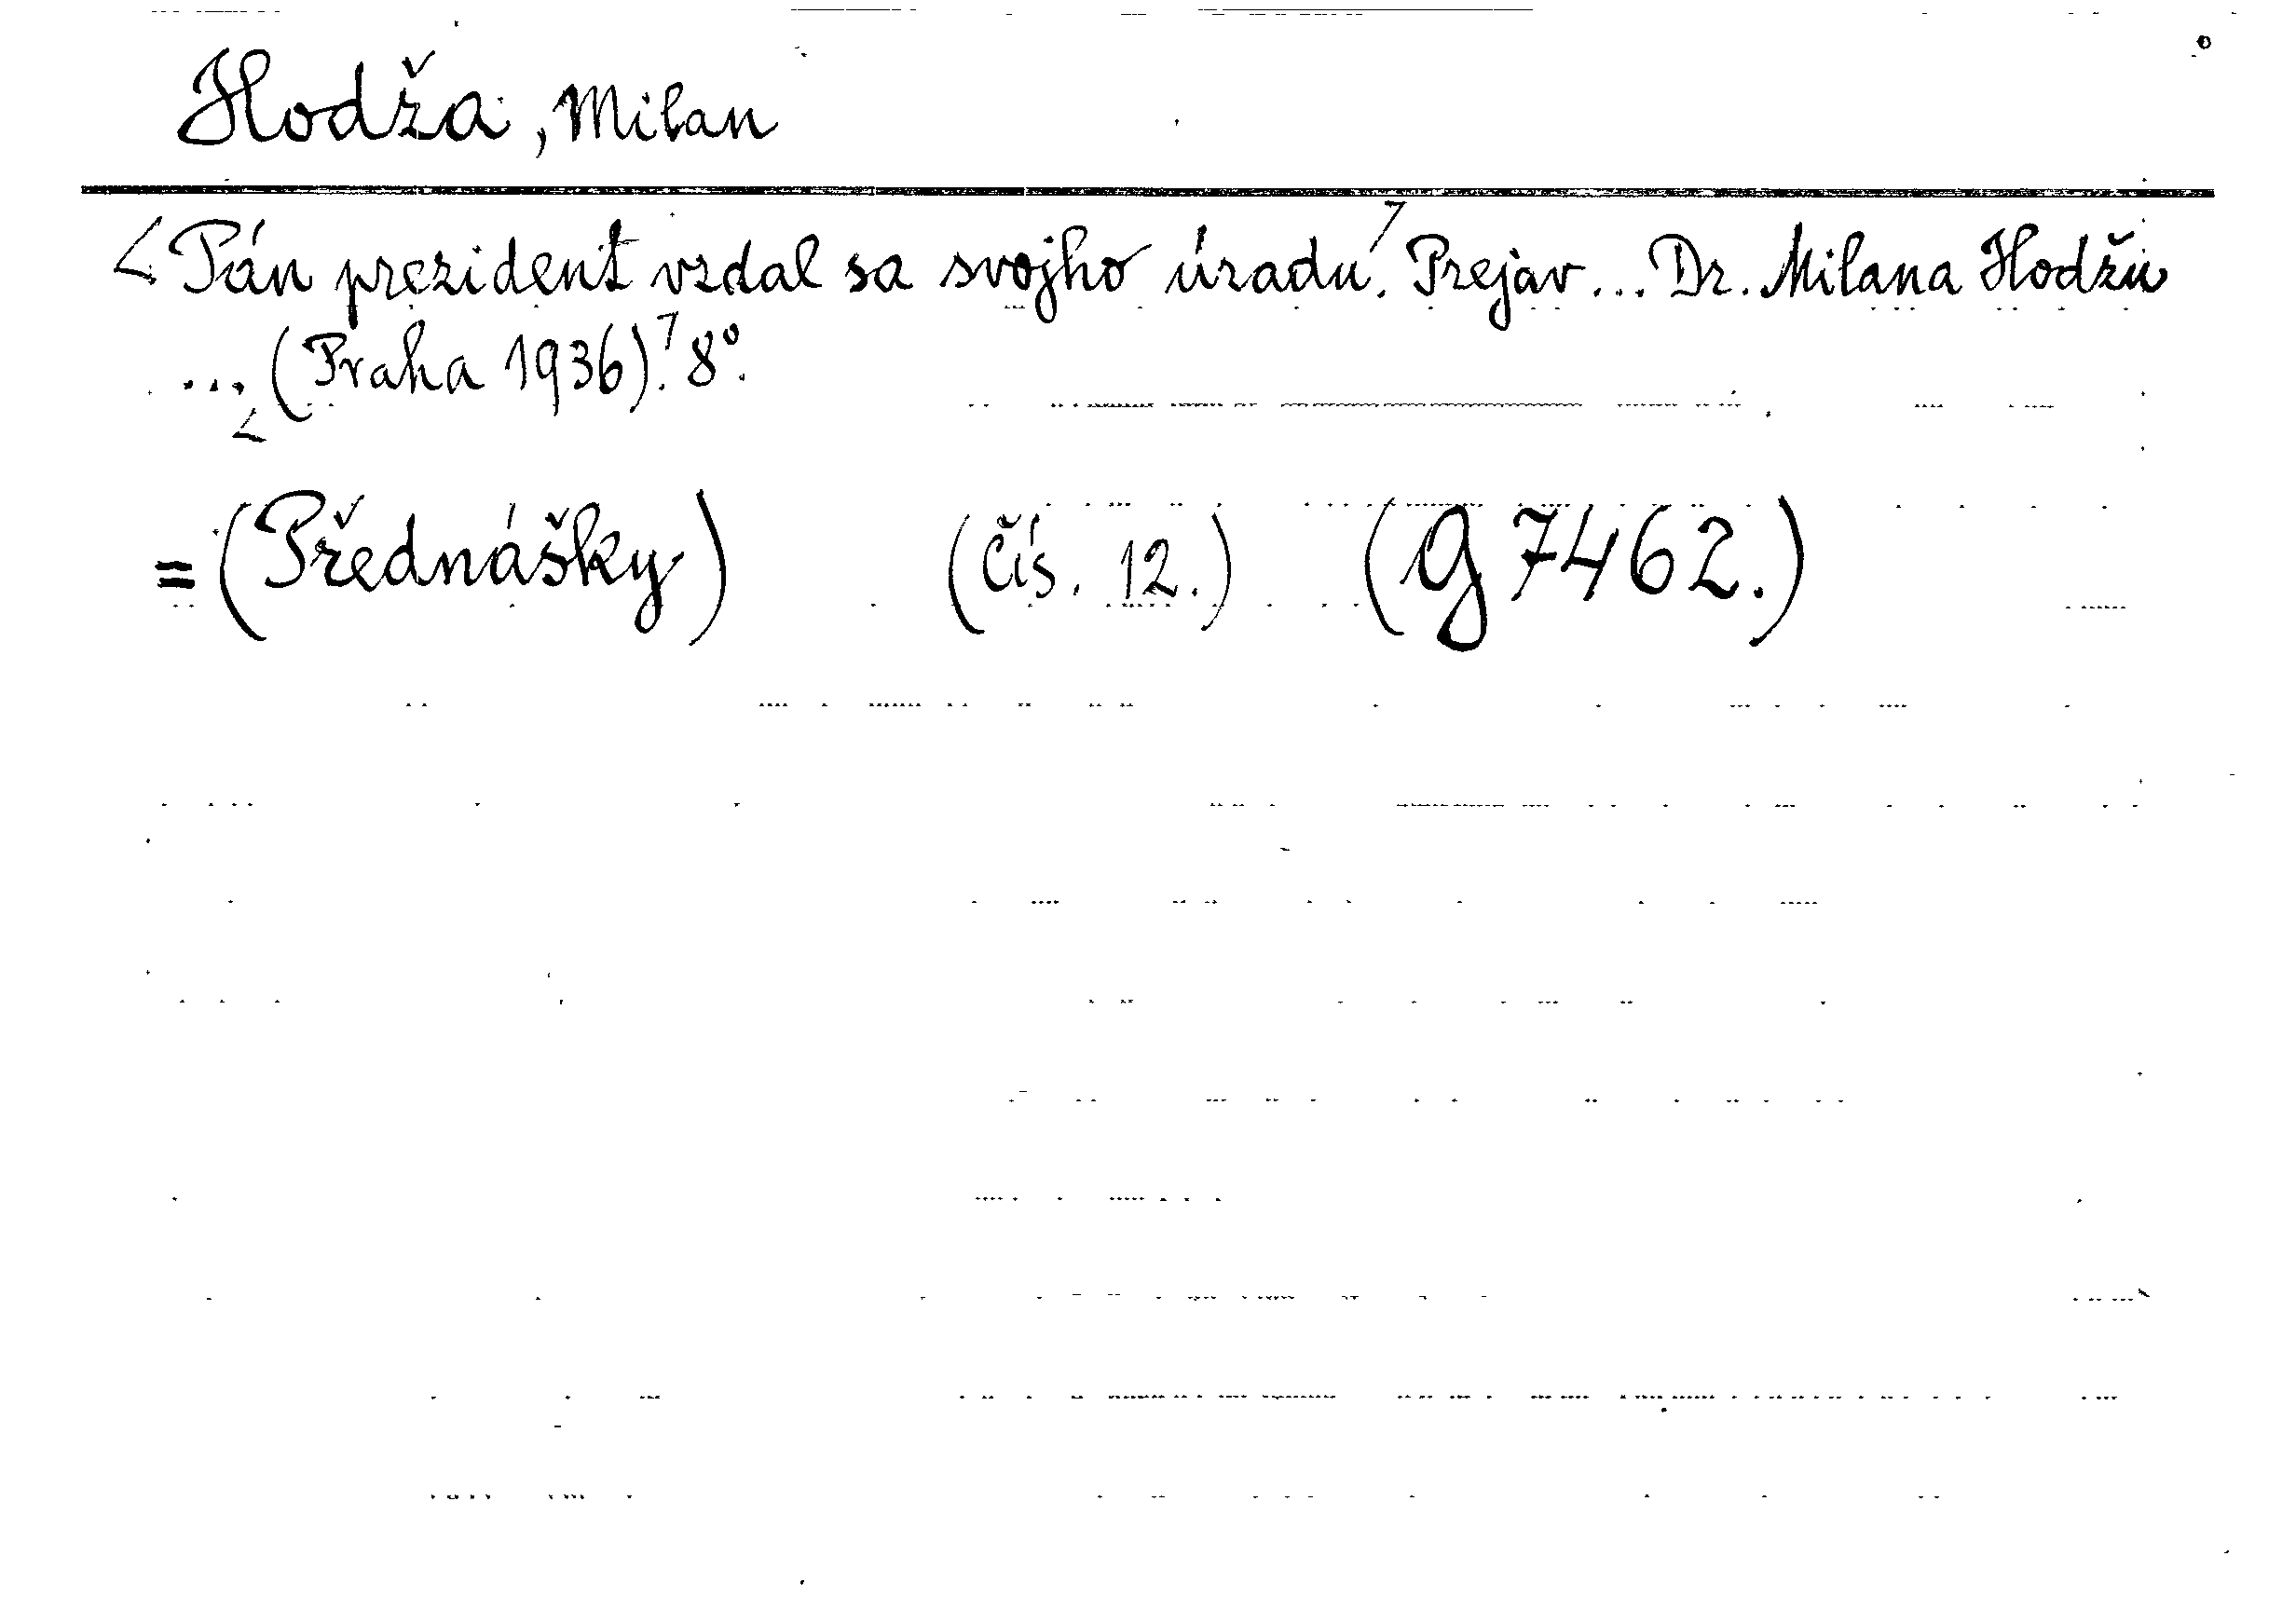 Hodža, Milan
<Pán prezident vzdal sa svojho úradu.> Prejav... Dr. Milana Hodžu
... <(Praha 1936).> 8°.
=(Přednášky) (Čís. 12.) (g 7462.)